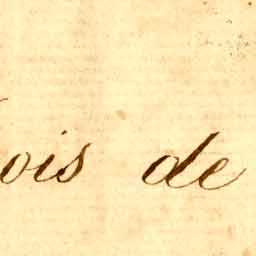 ois de